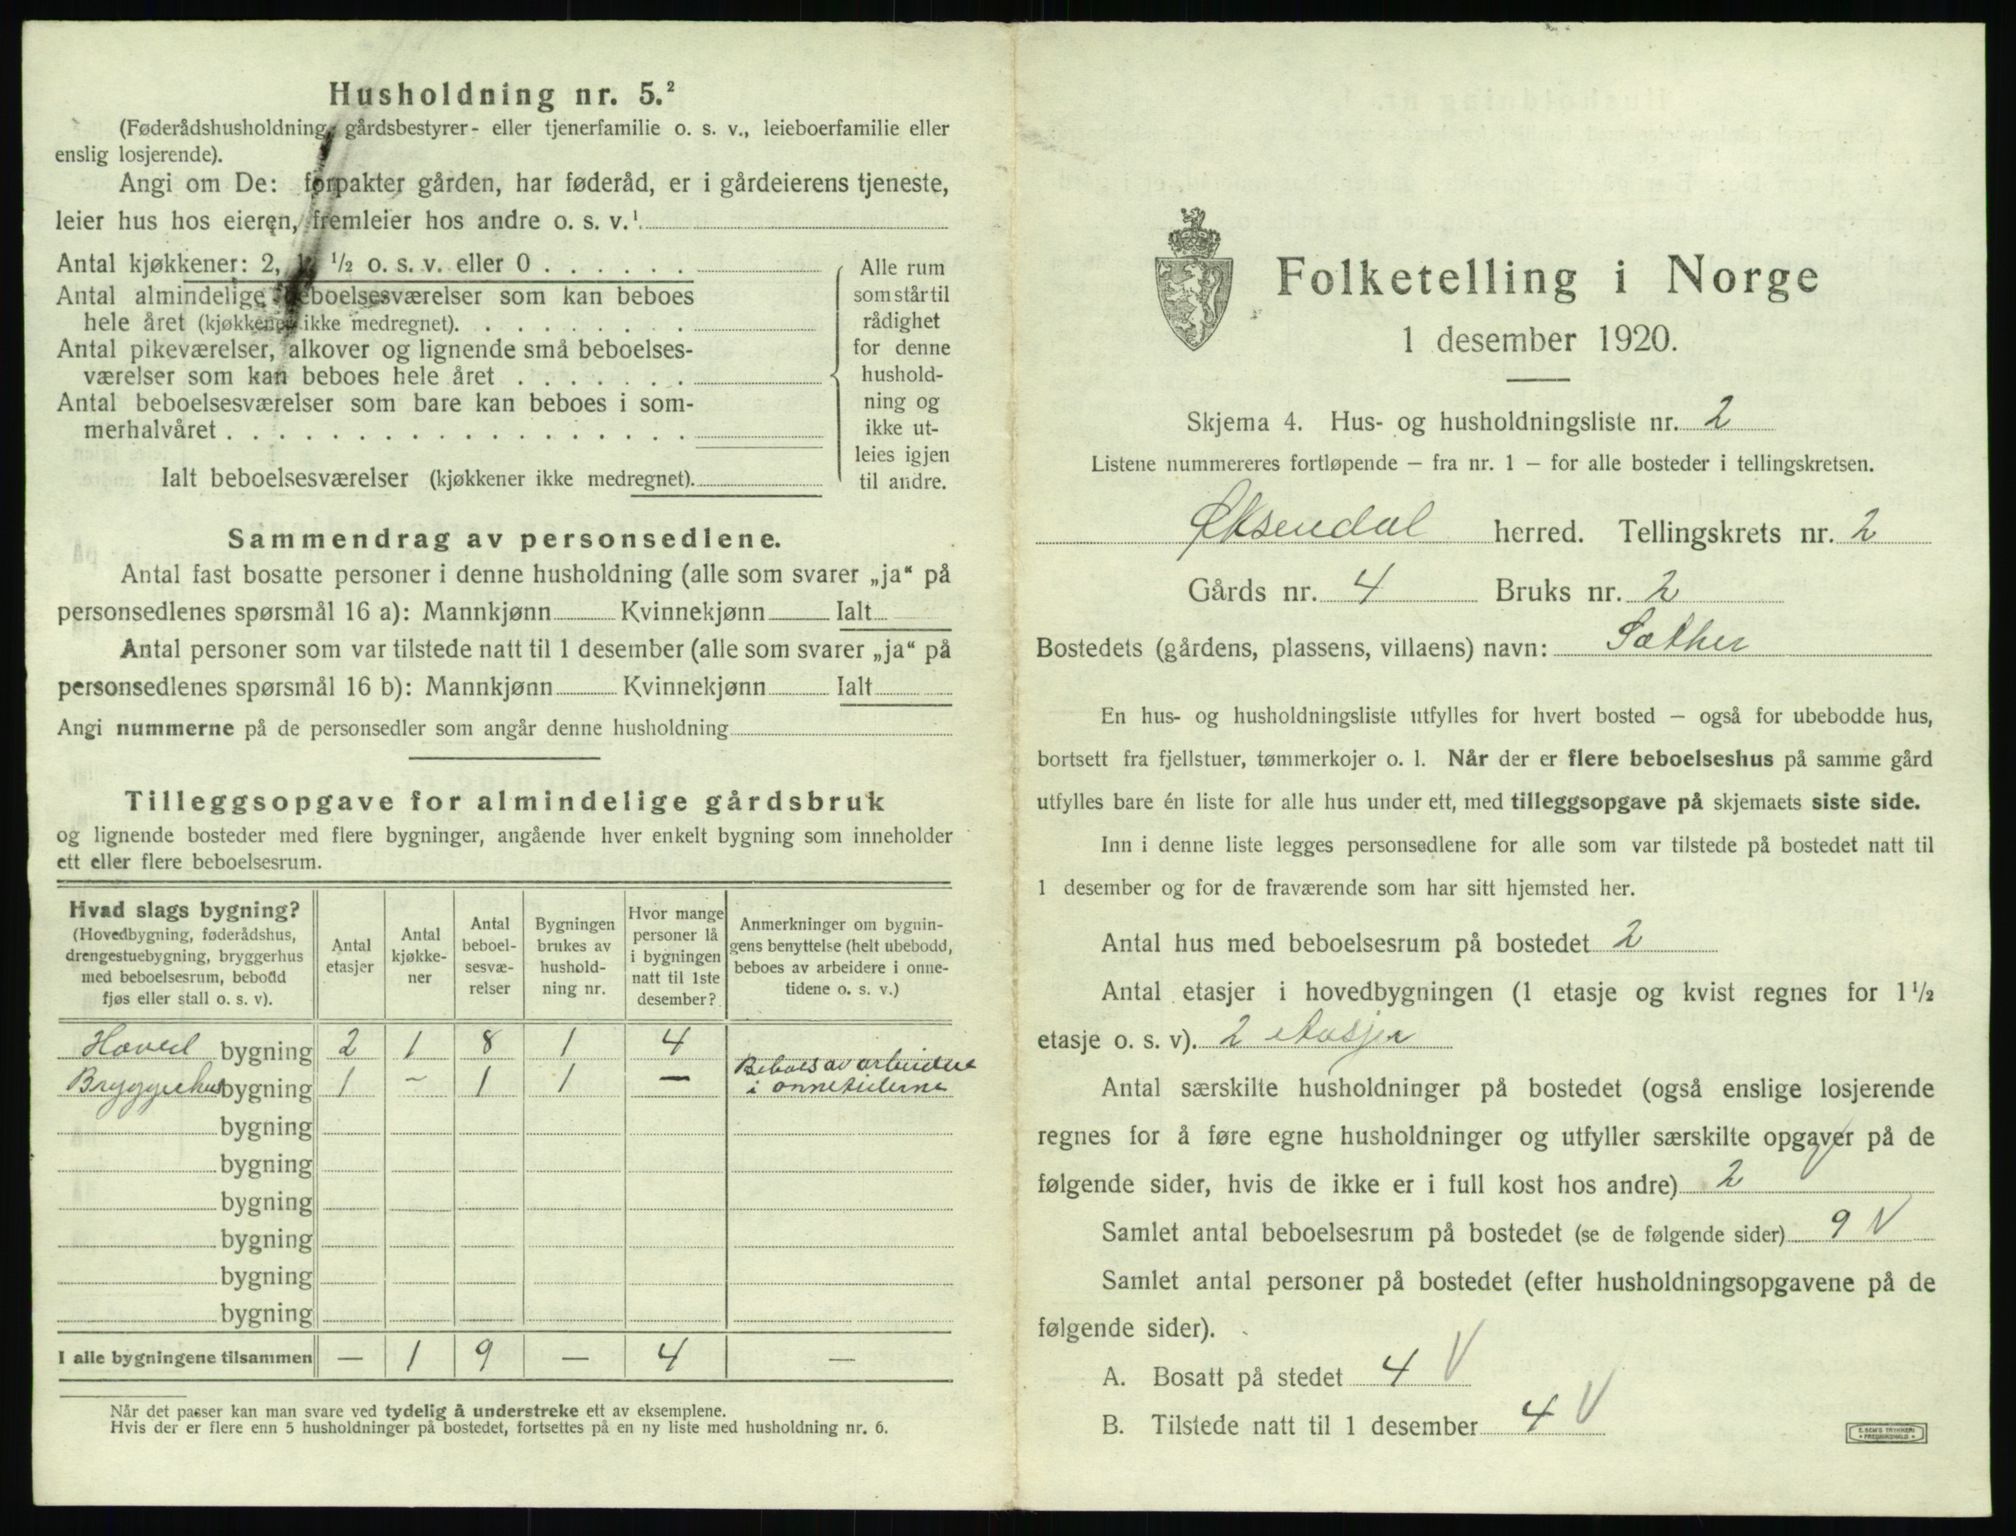 Husholdning nr. 5.²
(Føderådshusholdning, gårdsbestyrer- eller tjenerfamilie o. s. v., leieboerfamilie eller
enslig losjerende).
Angi om De: forpakter gården, har føderåd, er i gårdeierens tjeneste,
leier hus hos eieren, fremleier hos andre o. s. v.¹
Antal kjøkkener: 2, 1, ½ o. s. v. eller 0
Antal almindelige beboelsesværelser som kan beboes
hele året (kjøkkener ikke medregnet).
Antal pikeværelser, alkover og lignende små beboelses-
værelser som kan beboes hele året
Antal beboelsesværelser som bare kan beboes i som-
merhalvåret
Alle rum
som står til
rådighet
for denne
hushold-
ning og
ikke ut-
leies igjen
til andre.
Ialt beboelsesværelser (kjøkkener ikke medregnet).
Sammendrag av personsedlene.
Antal fast bosatte personer i denne husholdning (alle som svarer „ja“ på
personsedlenes spørsmål 16 a): Mannkjønn Kvinnekjønn Ialt
Antal personer som var tilstede natt til 1 desember (alle som svarer „ja“ på
personsedlenes spørsmål 16 b): Mannkjønn Kvinnekjønn Ialt
Angi nummerne på de personsedler som angår denne husholdning
Tilleggsopgave for almindelige gårdsbruk
og lignende bosteder med flere bygninger, angående hver enkelt bygning som inneholder
ett eller flere beboelsesrum.
Hvad slags bygning?
(Hovedbygning, føderådshus,
drengestuebygning, bryggerhus
med beboelsesrum, bebodd
fjøs eller stall o. s. v).
Antal
etasjer
Antal
kjøkke-
ner
Antal
beboel-
sesvæ-
relser
Bygningen
brukes av
hushold-
ning nr.
Hvor mange
personer lå
i bygningen
natt til 1ste
desember?
Anmerkninger om bygnin-
gens benyttelse (helt ubebodd,
beboes av arbeidere i onne-
tidene o. s. v.)
Hoved bygning 2 1 8 1 4
Bryggerhus bygning 1 - 1 1 - Beboes av arbeidere
i onnetiderne
bygning
bygning
bygning
bygning
bygning
bygning
I alle bygningene tilsammen — 1 9 — 4 —
Når det passer kan man svare ved tydelig å understreke ett av eksemplene.
Hvis der er flere enn 5 husholdninger på bostedet, fortsettes på en ny liste med husholdning nr. 6.
Folketelling i Norge
1 desember 1920.
Skjema 4. Hus- og husholdningsliste nr. 2
Listene nummereres fortløpende – fra nr. 1 – for alle bosteder i tellingskretsen.
Øksendal herred. Tellingskrets nr. 2
Gårds nr. 4 Bruks nr. 2
Bostedets (gårdens, plassens, villaens) navn: Sæther
En hus- og husholdningsliste utfylles for hvert bosted – også for ubebodde hus,
bortsett fra fjellstuer, tømmerkojer o. l. Når der er flere beboelseshus på samme gård
utfylles bare én liste for alle hus under ett, med tilleggsopgave på skjemaets siste side.
Inn i denne liste legges personsedlene for alle som var tilstede på bostedet natt til
1 desember og for de fraværende som har sitt hjemsted her.
Antal hus med beboelsesrum på bostedet 2
Antal etasjer i hovedbygningen (1 etasje og kvist regnes for 1½
etasje o. s. v). 2 etasjer
Antal særskilte husholdninger på bostedet (også enslige losjerende
regnes for å føre egne husholdninger og utfyller særskilte opgaver på de
følgende sider, hvis de ikke er i full kost hos andre) 2
Samlet antal beboelsesrum på bostedet (se de følgende sider) 9 V
Samlet antal personer på bostedet (efter husholdningsopgavene på de
følgende sider).
A. Bosatt på stedet 4 V
B. Tilstede natt til 1 desember 4 V
E. SEM'S TRYKKERI
FREDRIKSHALD